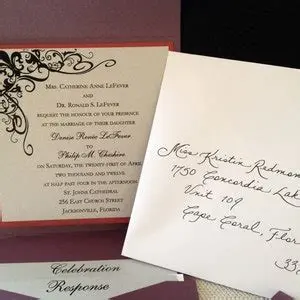 Mrs. Catherine Anne LeFever
and
Dr. Ronald S. LeFever
request the honour of your presence
at the marriage of their daughter
Denise Renée LeFever
to
Philip M. Cheshire
on Saturday, the twenty-first of April
two thousand and twelve
at half past four in the afternoon
St. Johns Cathedral
256 East Church Street
Jacksonville, Florida
Celebration
Response
Miss Kristin Redmon
1750 Concordia Lak
Unit 109
Cape Coral, Flor
33